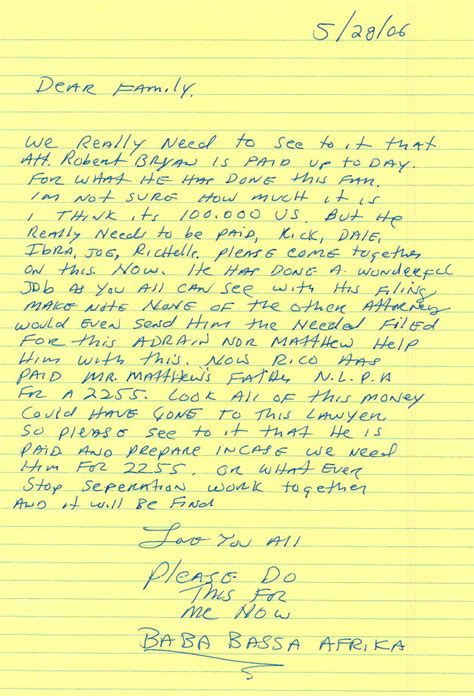 5/28/06
Dear Family.
We Really Need to see to it that
Att. Robert Bryan is paid up to Day.
For what He Has Done this Far.
I'm not sure How much it is
I Think its 100.000 US. But He
Really Needs to be paid, Rick, Dale,
Ibra, Joe, Richelle. please come together
on this Now. He Has Done A wonderful
Job as you all can see with His Filing
make Note None of the other Attorney
would Even send Him the Needed Filed
For this Adrain nor Matthew Help
Him with this. Now Rico Has
paid Mr. Matthews Father N.L.P.A
For a 2255. Look All of this money
Could Have gone to this Lawyer.
So please see to it that He is
paid and prepare incase we need
Him For 2255. or what Ever
Stop seperation work together
And it will Be Find
Love You All
Please Do
This For
me Now
BABA BASSA AFRIKA